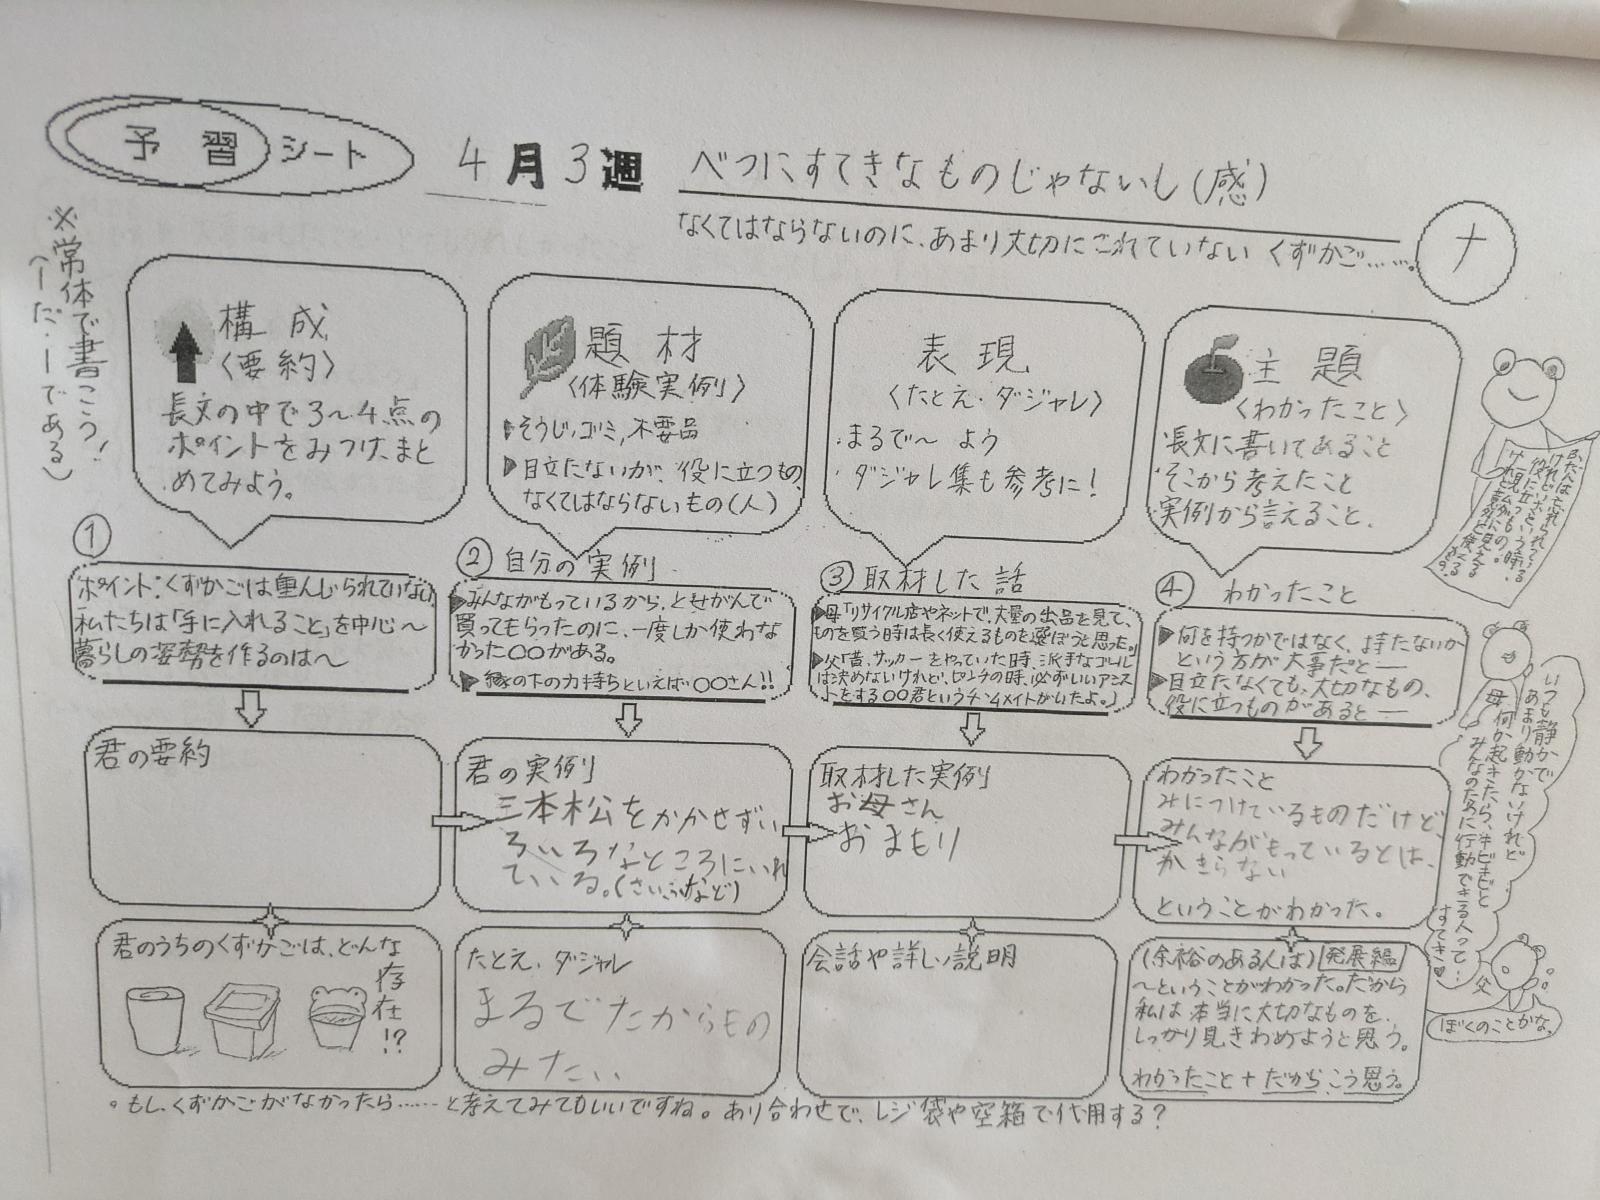 予習シート 4月3週 べつにすてきなものじゃないし(感)
なくてはならないのに、あまり大切にされていない くずかご……。
ナ
※常体で書こう!
(ーだ・ーである)
構成
〈要約〉
長文の中で3〜4点の
ポイントをみつけ、まと
めてみよう。
題材
〈体験実例〉
▶そうじ、ゴミ、不要品
▶目立たないが、役に立つもの
なくてはならないもの(人)
表現
〈たとえ・ダジャレ〉
・まるで〜よう
・ダジャレ集も参考に!
主題
〈わかったこと〉
・長文に書いてあること
・そこから考えたこと
実例から言えること、
ふだんは忘れられている
けれど、いざという時、
役に立つもの。
①
ポイント:くずかごは重んじられていない
私たちは「手に入れること」を中心〜
暮らしの姿勢を作るのは〜
② 自分の実例
▶みんながもっているから、とせがんで
買ってもらったのに、一度しか使わな
かった〇〇がある。
▶縁の下の力持ちといえば〇〇さん!!
③ 取材した話
▶母「リサイクル店やネットで、大量の出品を見て、
ものを買う時は長く使えるものを選ぼうと思った。」
▶父「昔、サッカーをやっていた時、派手なゴール
は決めないけれど、ピンチの時、必ずいいアシス
トをする〇〇君というチームメイトがいたよ。」
④ わかったこと
▶何を持つかではなく、持たないか
という方が大事だと―
▶目立たなくても、大切なもの、
役に立つものがあると―
君の要約
君の実例
三本松をかかせずい
ろいろなところにいれ
ている。(さいふなど)
取材した実例
お母さん
おまもり
わかったこと
みにつけているものだけど、
みんながもっているとは、
かぎらない
ということがわかった。
母
いつも静かで
あまり動かないけれど
何か起きたら、キビキビと
みんなのために行動できる人って…
すてき♥
君のうちのくずかごは、どんな
存在!?
たとえ・ダジャレ
まるでたからもの
みたい
会話や詳しい説明
(余裕のある人は)発展編
〜ということがわかった。だから
私は本当に大切なものを、
しっかり見きわめようと思う。
わかったこと+だからこう思う。
父
ぼくのことかな。
。もし、くずかごがなかったら……と考えてみてもいいですね。あり合わせで、レジ袋や空箱で代用する?